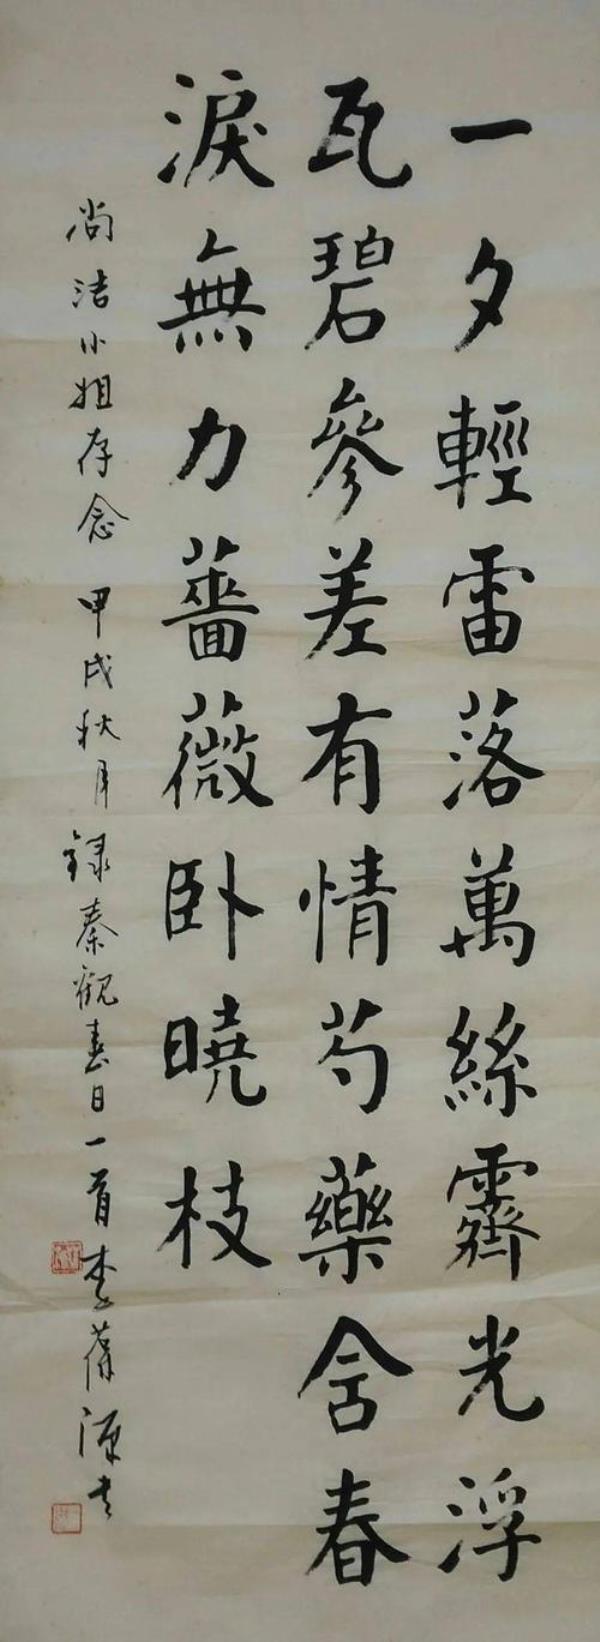 一夕輕雷落萬絲霽光浮
瓦碧參差有情芍藥含春
淚無力薔薇卧曉枝
尚洁小姐存念 甲戌秋月 録秦観春日一首 李葆源书